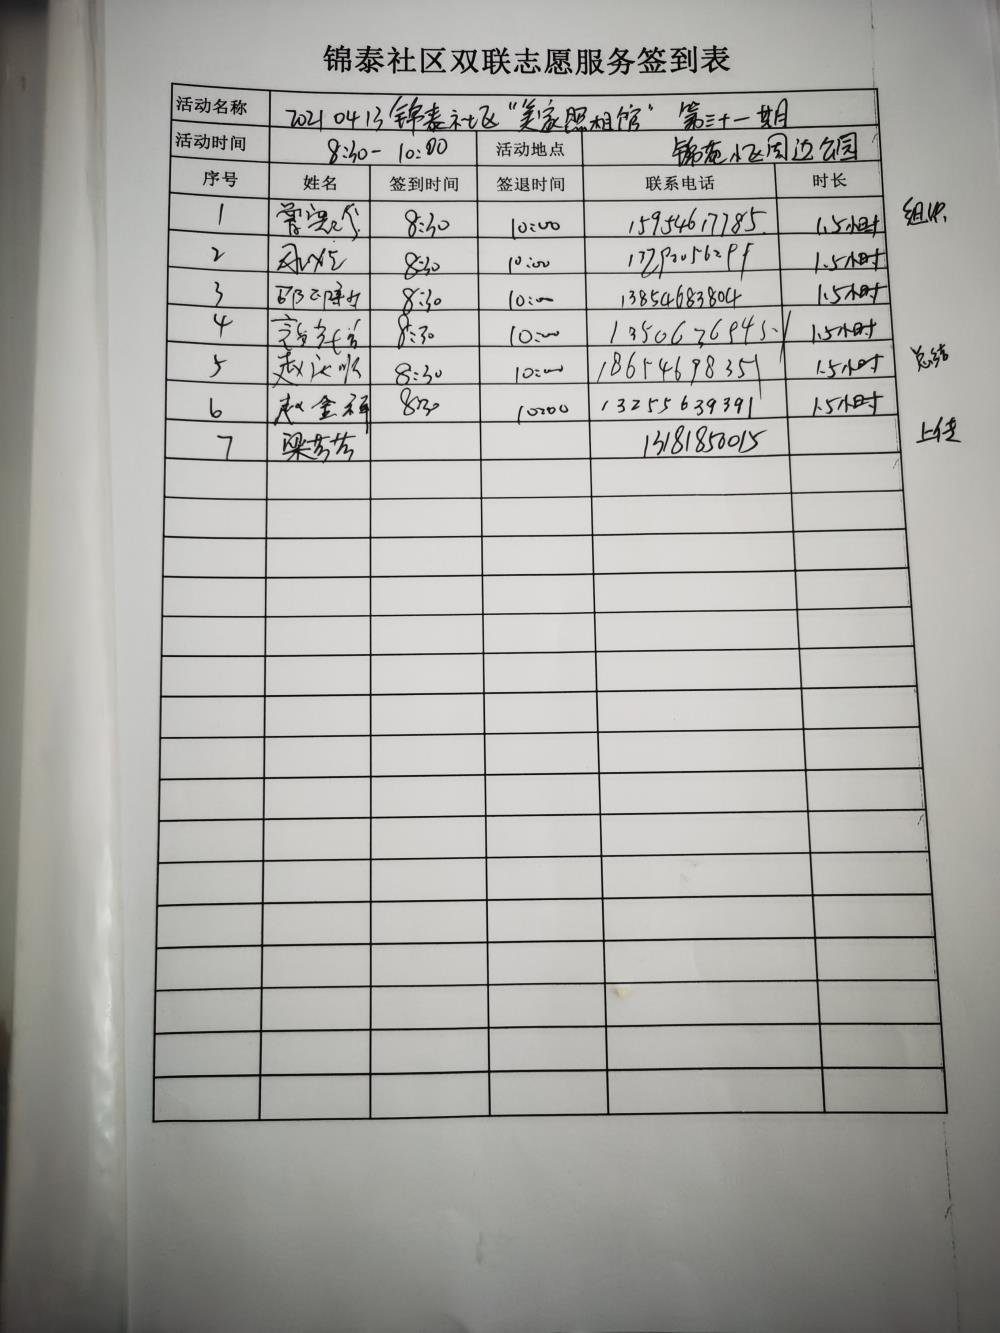 锦泰社区双联志愿服务签到表
活动名称 20210413锦泰社区“美家照相馆” 第三十一期
活动时间 8:30-10:00 活动地点 锦苑小区周边公园
序号 姓名 签到时间 签退时间 联系电话 时长
1 8:30 10:00 15954617785 1.5小时 组织
2 8:30 10:00 1.5小时
3 8:30 10:00 13854683804 1.5小时
4 8:30 10:00 1.5小时
5 8:30 10:00 18654698351 1.5小时 总结
6 赵金祥 8:30 10:00 13255639391 1.5小时
7 梁芳芳 13181850015 上传